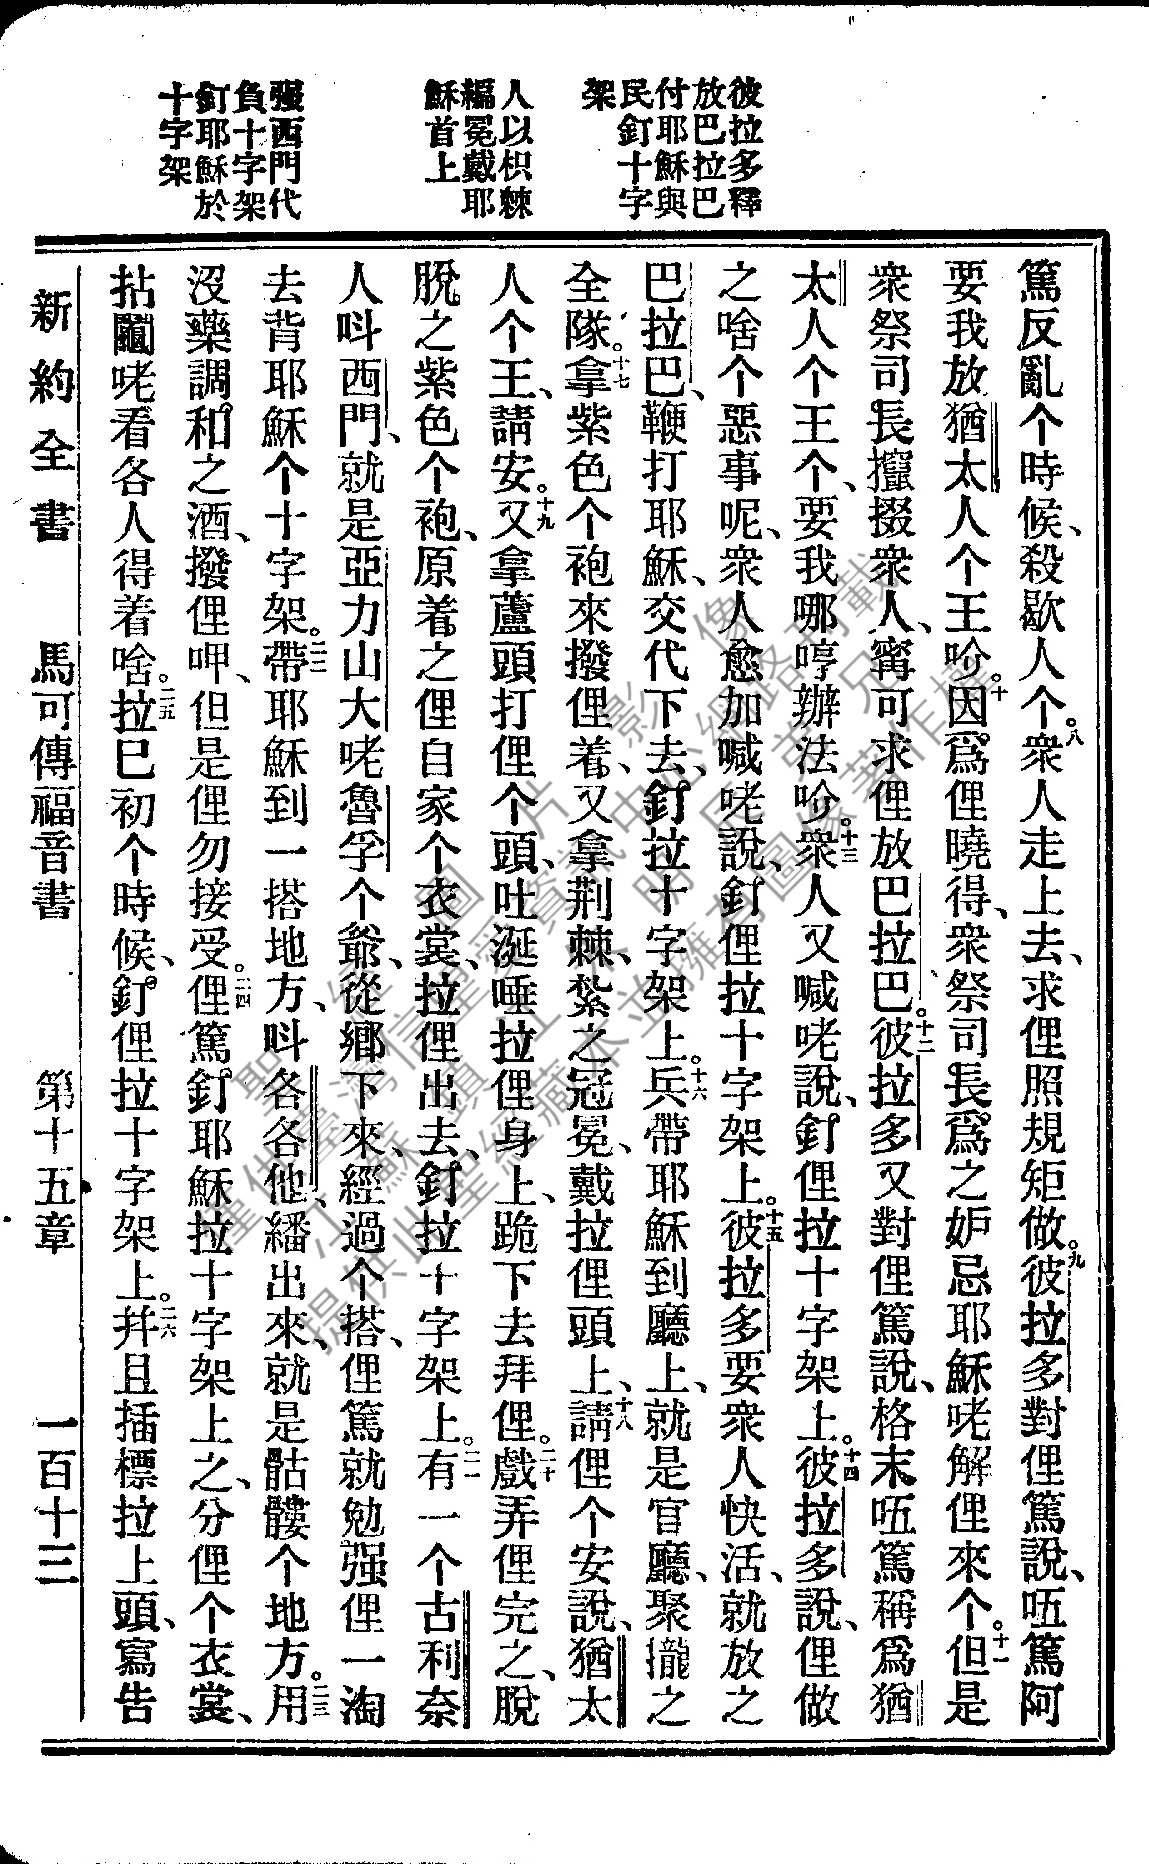 彼拉多釋
放巴拉巴
付耶穌與
民釘十字
架
人以枳棘
編冕戴耶
穌首上
强西門代
負十字架
釘耶穌於
十字架
篤反亂个時候、殺歇人个。八衆人走上去、求俚照規矩做。九彼拉多對俚篤說、㕶篤阿
要我放猶太人个王吤。十因爲俚曉得、衆祭司長、爲之妒忌耶穌咾解俚來个。十一但是
衆祭司長攛掇衆人、甯可求俚放巴拉巴。十二彼拉多又對俚篤說、格末㕶篤稱爲猶
太人个王个、要我哪哼辦法吤。十三衆人又喊咾說、釘俚拉十字架上。十四彼拉多說、俚做
之啥个惡事呢、衆人愈加喊咾說、釘俚拉十字架上。十五彼拉多要衆人快活、就放之
巴拉巴、鞭打耶穌、交代下去、釘拉十字架上。十六兵帶耶穌到廳上、就是官廳、聚攏之
全隊。十七拿紫色个袍來撥俚着、又拿荆棘、紮之冠冕、戴拉俚頭上、十八請俚个安說、猶太
人个王、請安。十九又拿蘆頭打俚个頭、吐涎唾拉俚身上、跪下去拜俚。二十戲弄俚完之、脫
脫之紫色个袍、原着之俚自家个衣裳、拉俚出去、釘拉十字架上。二一有一个古利奈
人呌西門、就是亞力山大咾魯孚个爺、從鄉下來、經過个搭、俚篤就勉强俚一淘
去背耶穌个十字架。二二帶耶穌到一搭地方、呌各各他、繙出來、就是骷髏个地方。二三用
沒藥調和之酒、撥俚呷、但是俚勿接受。二四俚篤釘耶穌拉十字架上之、分俚个衣裳、
拈鬮咾看各人得着啥。二五拉巳初个時候、釘俚拉十字架上。二六幷且插標拉上頭、寫告
新約全書　馬可傳福音書　第十五章　一百十三